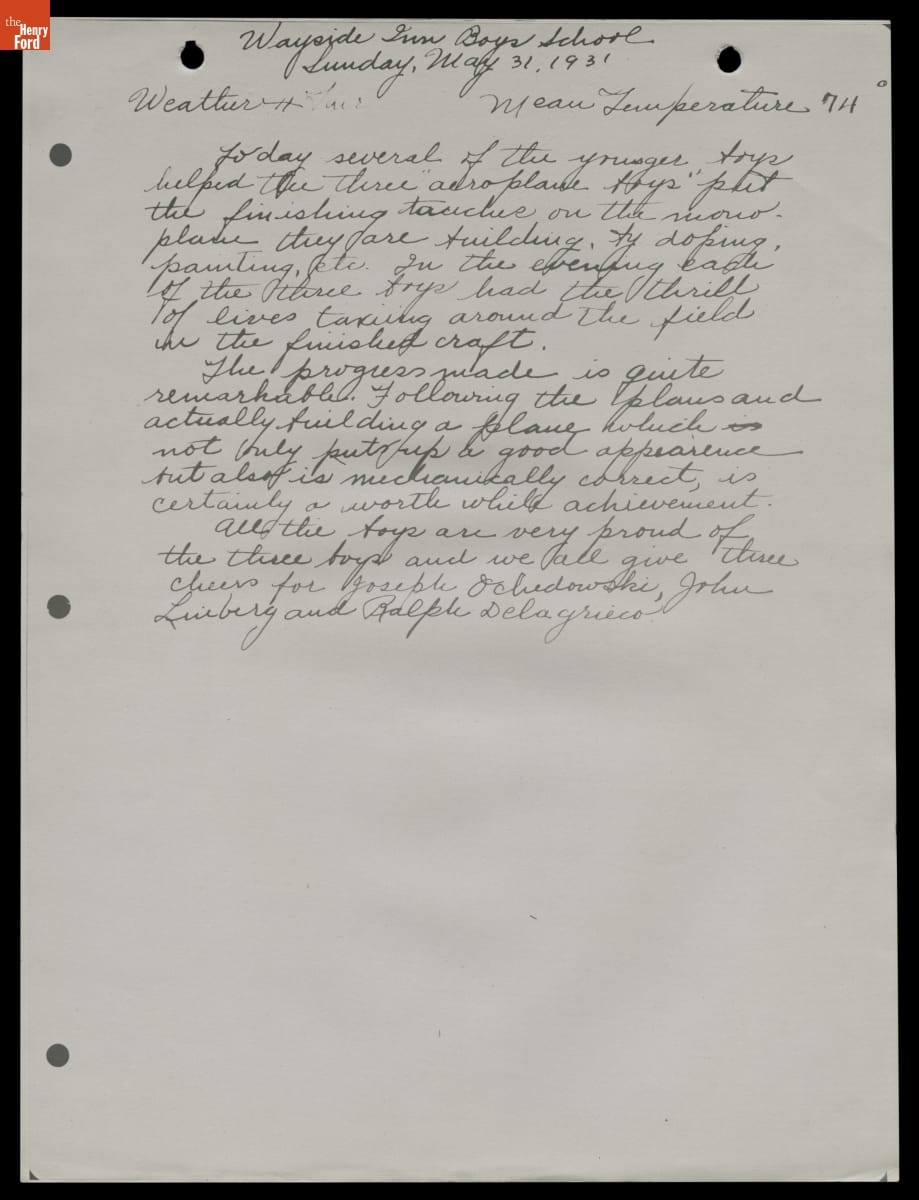 the
Henry
Ford
Wayside Inn Boys School
Sunday, May 31, 1931
Weather Fair Mean Temperature 74°
Today several of the younger boys
helped the three "aeroplane boys" put
the finishing touches on the mono-
plane they are building, by doping,
painting, etc. In the evening each
of the three boys had the thrill
of lives taxiing around the field
in the finished craft.
The progress made is quite
remarkable. Following the plans and
actually building a plane which is
not only puts up a good appearence
but also is mechanically correct, is
certainly a worth while achievement.
All the boys are very proud of
the three boys and we all give three
cheers for Joseph Ochedowski, John
Linberg and Ralph Delagrieco